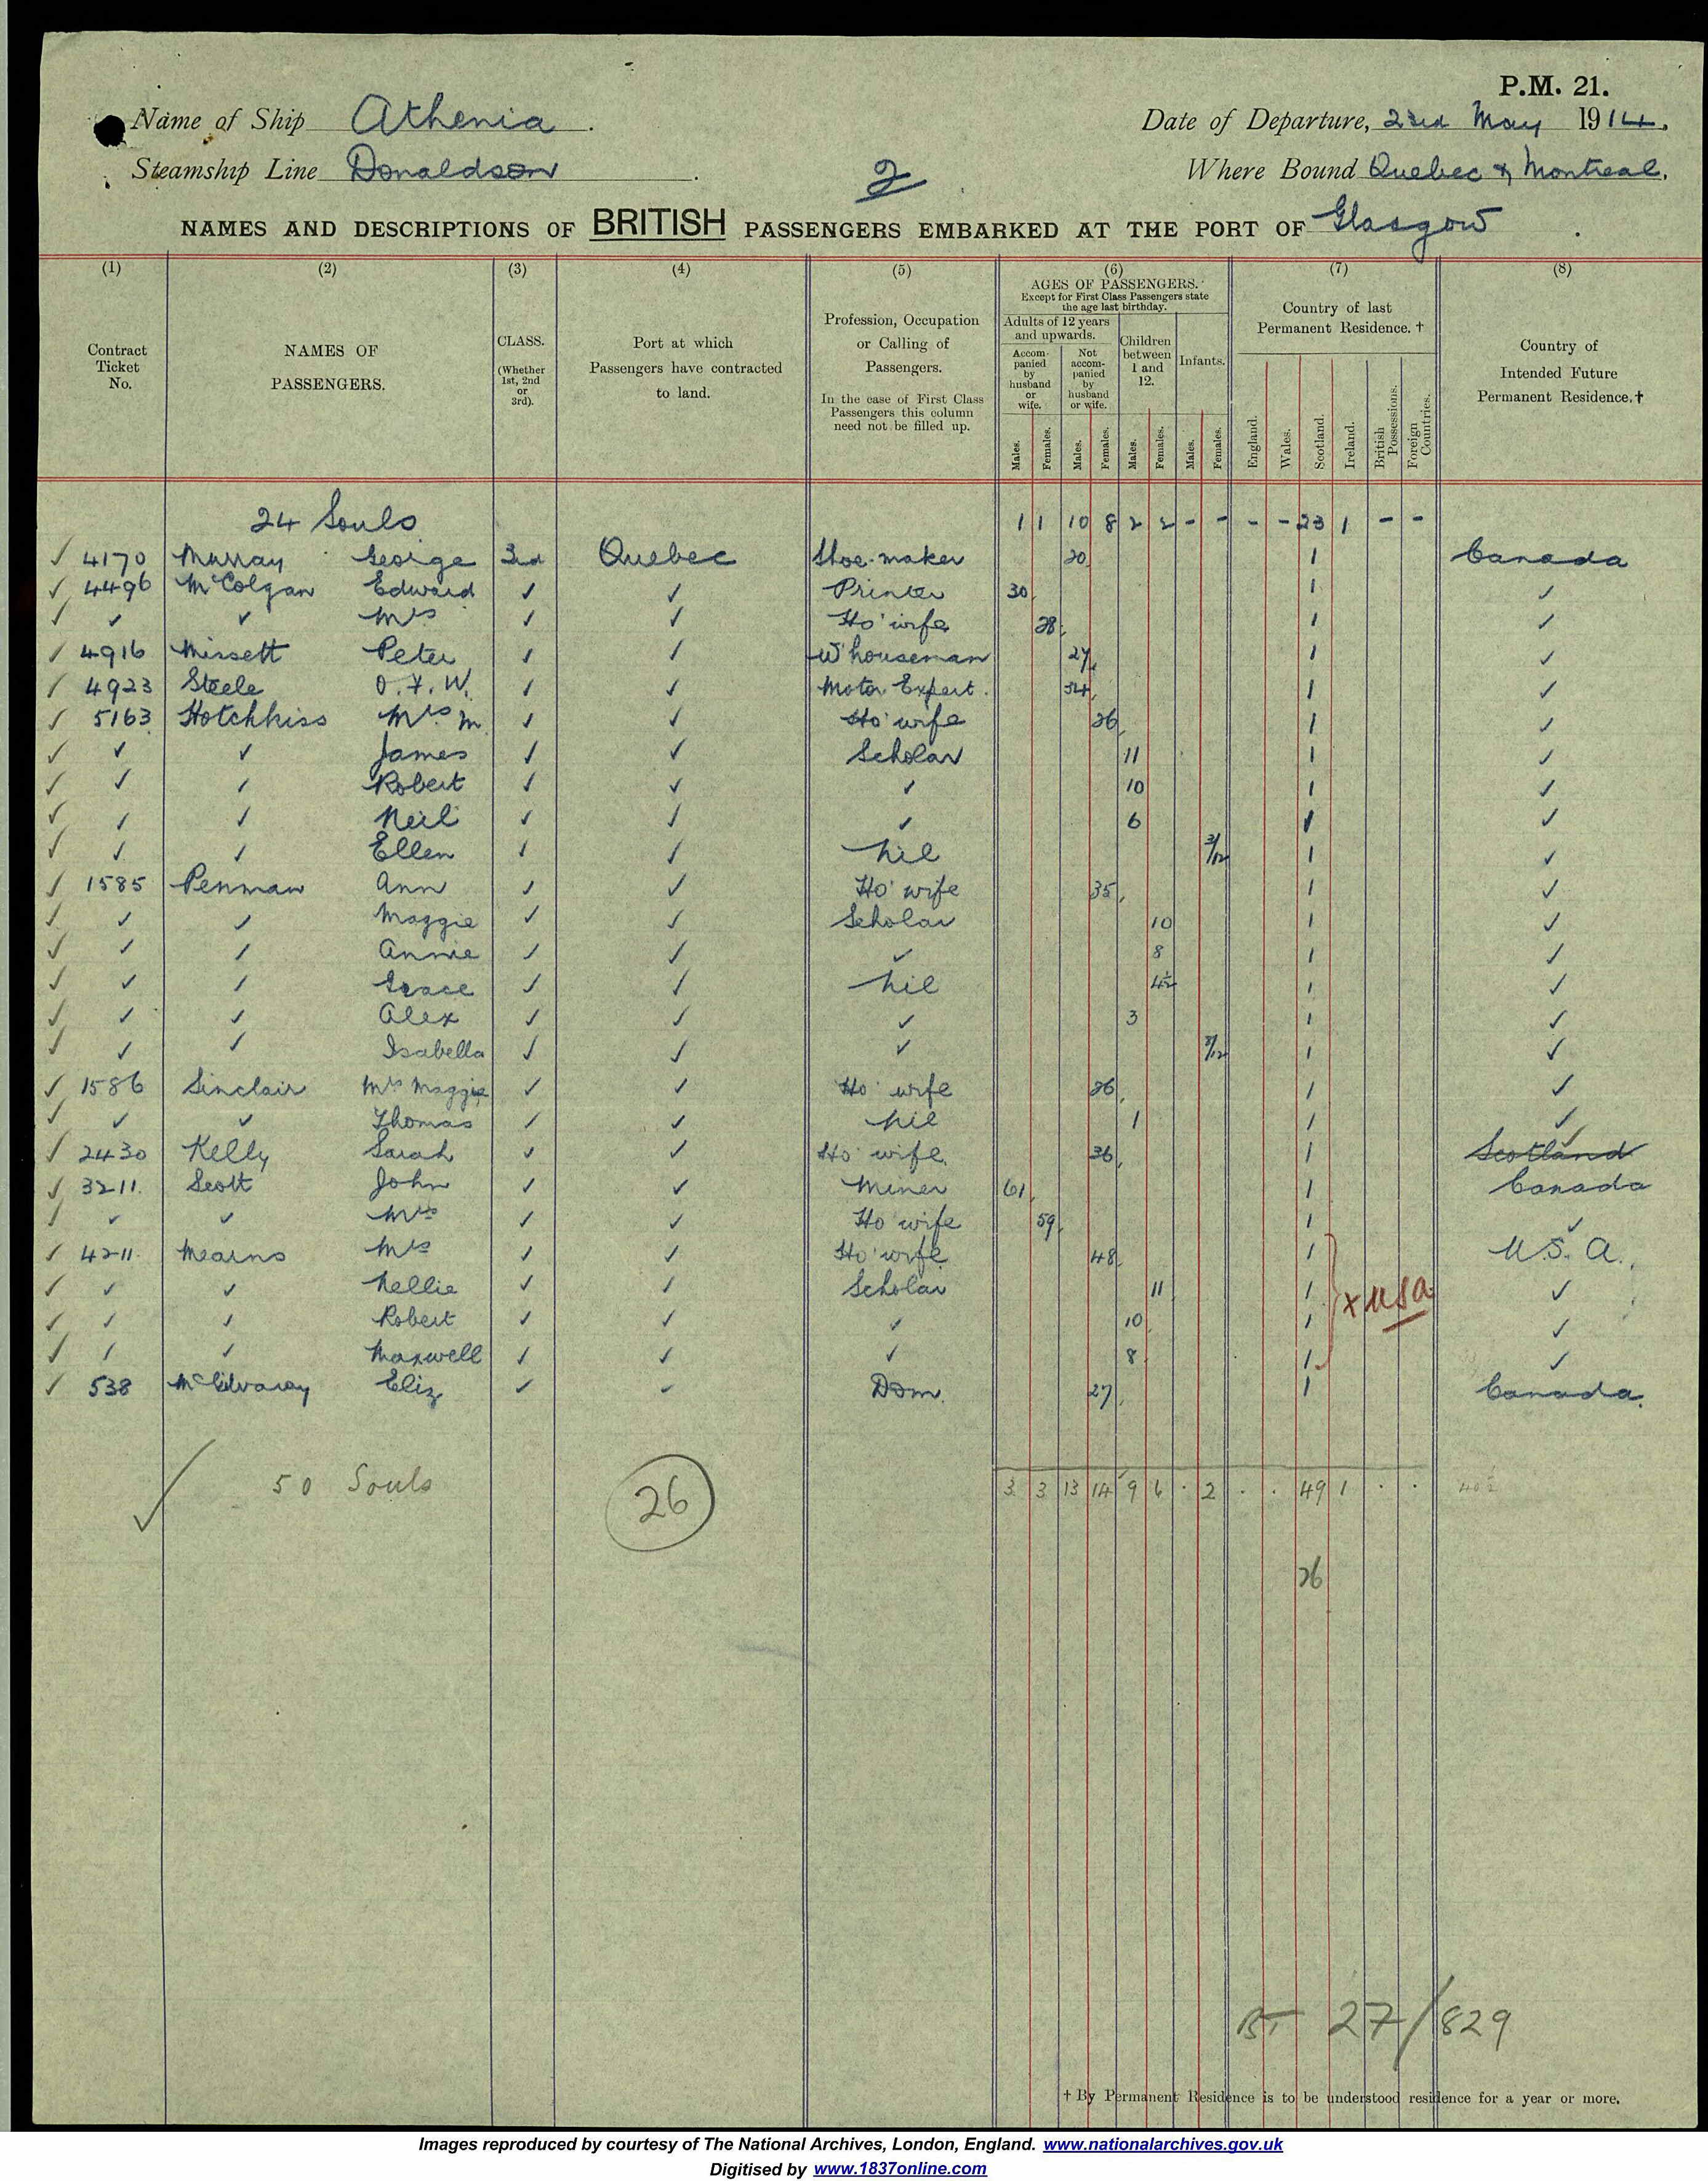 P.M. 21.
Name of Ship Athenia. Date of Departure, 23rd May 1914.
Steamship Line Donaldson. 2 Where Bound Quebec & Montreal.
NAMES AND DESCRIPTIONS OF BRITISH PASSENGERS EMBARKED AT THE PORT OF Glasgow.
(1) (2) (3) (4) (5) (6) (7) (8)
Contract Ticket No.
NAMES OF PASSENGERS.
CLASS. (Whether 1st, 2nd or 3rd).
Port at which Passengers have contracted to land.
Profession, Occupation or Calling of Passengers.
In the case of First Class Passengers this column need not be filled up.
AGES OF PASSENGERS.
Except for First Class Passengers state the age last birthday.
Adults of 12 years and upwards.
Accompanied by husband or wife.
Not accompanied by husband or wife.
Children between 1 and 12.
Infants.
Males. Females. Males. Females. Males. Females. Males. Females.
Country of last Permanent Residence. †
England. Wales. Scotland. Ireland. British Possessions. Foreign Countries.
Country of Intended Future Permanent Residence.†
24 Souls 1 1 10 8 2 2 - - - - 23 1 - -
✓ 4170 Murray George 3rd Quebec Shoe-maker 20 1 Canada
✓ 4496 McColgan Edward ✓ ✓ Printer 30 1 ✓
✓ ✓ ✓ Mrs ✓ ✓ Ho' wife 28 1 ✓
✓ 4916 Missett Peter ✓ ✓ W'houseman 27 1 ✓
✓ 4923 Steele O. F. W. ✓ ✓ Motor Expert. 34 1 ✓
✓ 5163 Hotchkiss Mrs M. ✓ ✓ Ho' wife 26 1 ✓
✓ ✓ ✓ James ✓ ✓ Scholar 11 1 ✓
✓ ✓ ✓ Robert ✓ ✓ ✓ 10 1 ✓
✓ ✓ ✓ Neil ✓ ✓ ✓ 6 1 ✓
✓ ✓ ✓ Ellen ✓ ✓ Nil 3/12 1 ✓
✓ 1585 Penman Ann ✓ ✓ Ho' wife 35 1 ✓
✓ ✓ ✓ Maggie ✓ ✓ Scholar 10 1 ✓
✓ ✓ ✓ Annie ✓ ✓ ✓ 8 1 ✓
✓ ✓ ✓ Grace ✓ ✓ Nil 4½ 1 ✓
✓ ✓ ✓ Alex ✓ ✓ ✓ 3 1 ✓
✓ ✓ ✓ Isabella ✓ ✓ ✓ 1 ✓
✓ 1586 Sinclair Mrs Maggie ✓ ✓ Ho' wife 26 1 ✓
✓ ✓ ✓ Thomas ✓ ✓ Nil 1 1 ✓
✓ 2430 Kelly Sarah ✓ ✓ Ho' wife 36 1 Scotland ✓
✓ 3211. Scott John ✓ ✓ Miner 61 1 Canada
✓ ✓ ✓ Mrs ✓ ✓ Ho' wife 59 1 ✓
✓ 4211. Mearns Mrs ✓ ✓ Ho' wife 48 1 U.S.A.
✓ ✓ ✓ Nellie ✓ ✓ Scholar 11 1 x USA ✓
✓ ✓ ✓ Robert ✓ ✓ ✓ 10 1 ✓
✓ ✓ ✓ Maxwell ✓ ✓ ✓ 8 1 ✓
✓ 538 Eliz ✓ ✓ Dom. 27 1 Canada.
✓ 50 Souls 26 3 3 13 14 9 6 · 2 · · 49 1 · ·
26
BT 27/829
† By Permanent Residence is to be understood residence for a year or more.
Images reproduced by courtesy of The National Archives, London, England. www.nationalarchives.gov.uk
Digitised by www.1837online.com